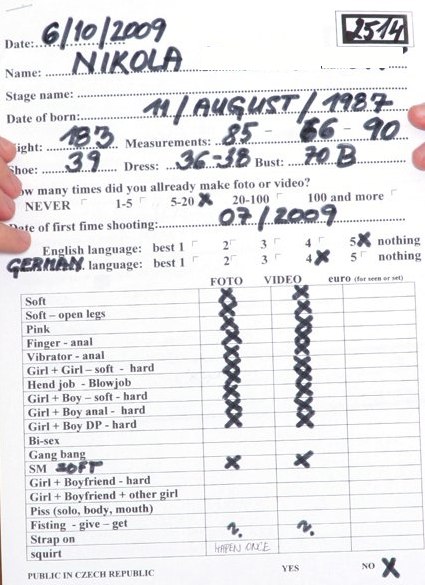 2514
Date: 6/10/2009
Name: NIKOLA
Stage name:
Date of born: 11/AUGUST/1987
ight: 183 Measurements: 85 - 66 - 90
hoe: 39 Dress: 36-38 Bust: 70 B
ow many times did you allready make foto or video?
NEVER 1-5 5-20 X 20-100 100 and more
Date of first fime shooting: 07/2009
English language: best 1 2 3 4 5 X nothing
GERMAN. language: best 1 2 3 4 X 5 nothing
FOTO VIDEO euro (for seen or set)
Soft X X
Soft – open legs X X
Pink X X
Finger - anal X X
Vibrator - anal X X
Girl + Girl – soft - hard X X
Hend job - Blowjob X X
Girl + Boy – soft - hard X X
Girl + Boy anal - hard X X
Girl + Boy DP - hard X X
Bi-sex
Gang bang
SM SOFT X X
Girl + Boyfriend - hard
Girl + Boyfriend + other girl
Piss (solo, body, mouth)
Fisting - give – get ? ?
Strap on
squirt HAPEN ONCE
PUBLIC IN CZECH REPUBLIC YES NO X